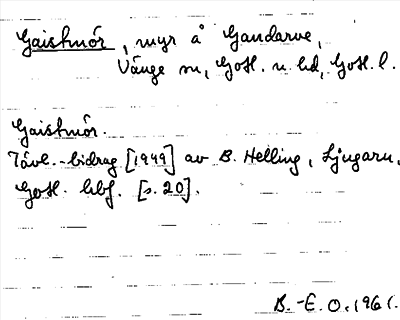 Gaistmór, myr å Gandarve,
Vänge sn, Gotl. n. hd, Gotl. l.
Gaistmór.
Tävl.-bidrag [1949] av B. Helling, Ljugarn,
Gotl. hbf. [s. 20].
B.-E. O. 1961.